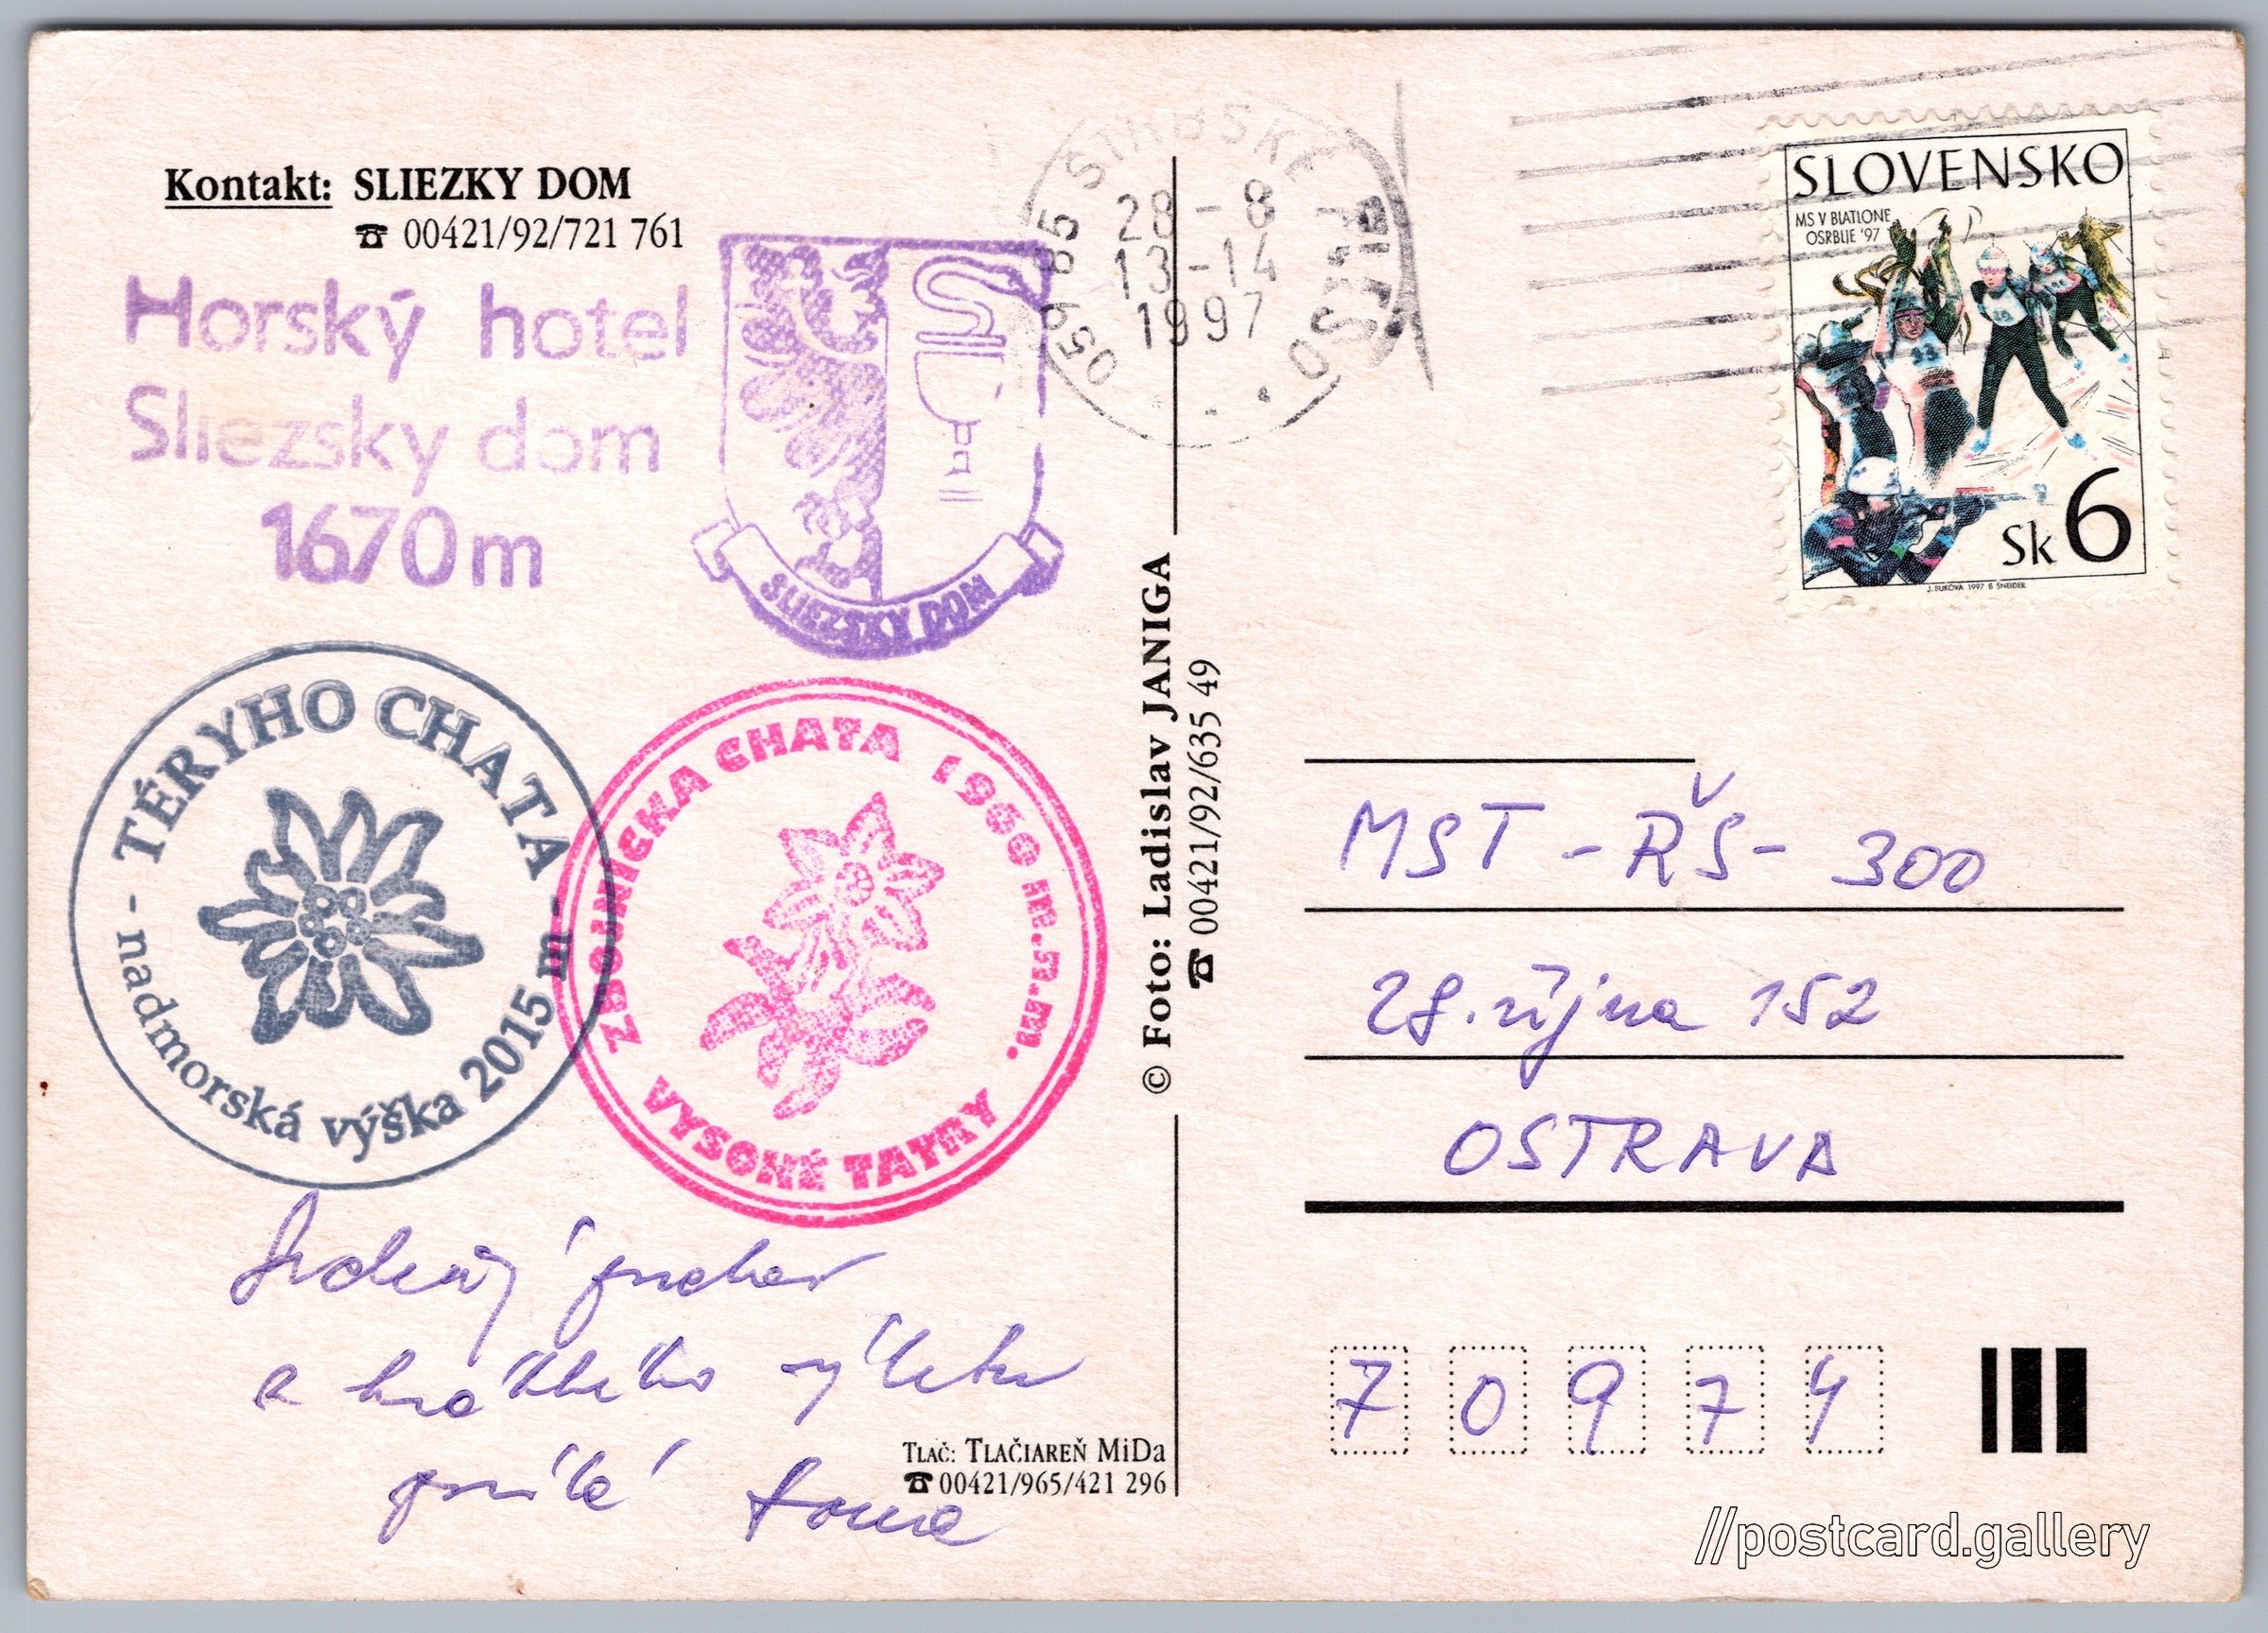 Kontakt: SLIEZKY DOM
☎ 00421/92/721 761
Horský hotel
Sliezsky dom
1670m
SLIEZSKY DOM
059 85 ŠTRBSKÉ PLESO
28-8
13-14
1997
SLOVENSKO
MS V BIATLONE
OSRBLIE '97
Sk 6
J. BUKOVA 1997 B. ŠNEIDER
- TÉRYHO CHATA -
nadmorská výška 2015 m
ZBOJNÍCKA CHATA 1960 m.n.m.
VYSOKÉ TATRY
© Foto: Ladislav JANIGA
☎ 00421/92/635 49
MST - RŠ - 300
28. října 152
OSTRAVA
70974
Srdečný pozdrav
z krátkého výletu
posílá
TLAČ: TLAČIAREŇ MiDa
☎ 00421/965/421 296
//postcard.gallery